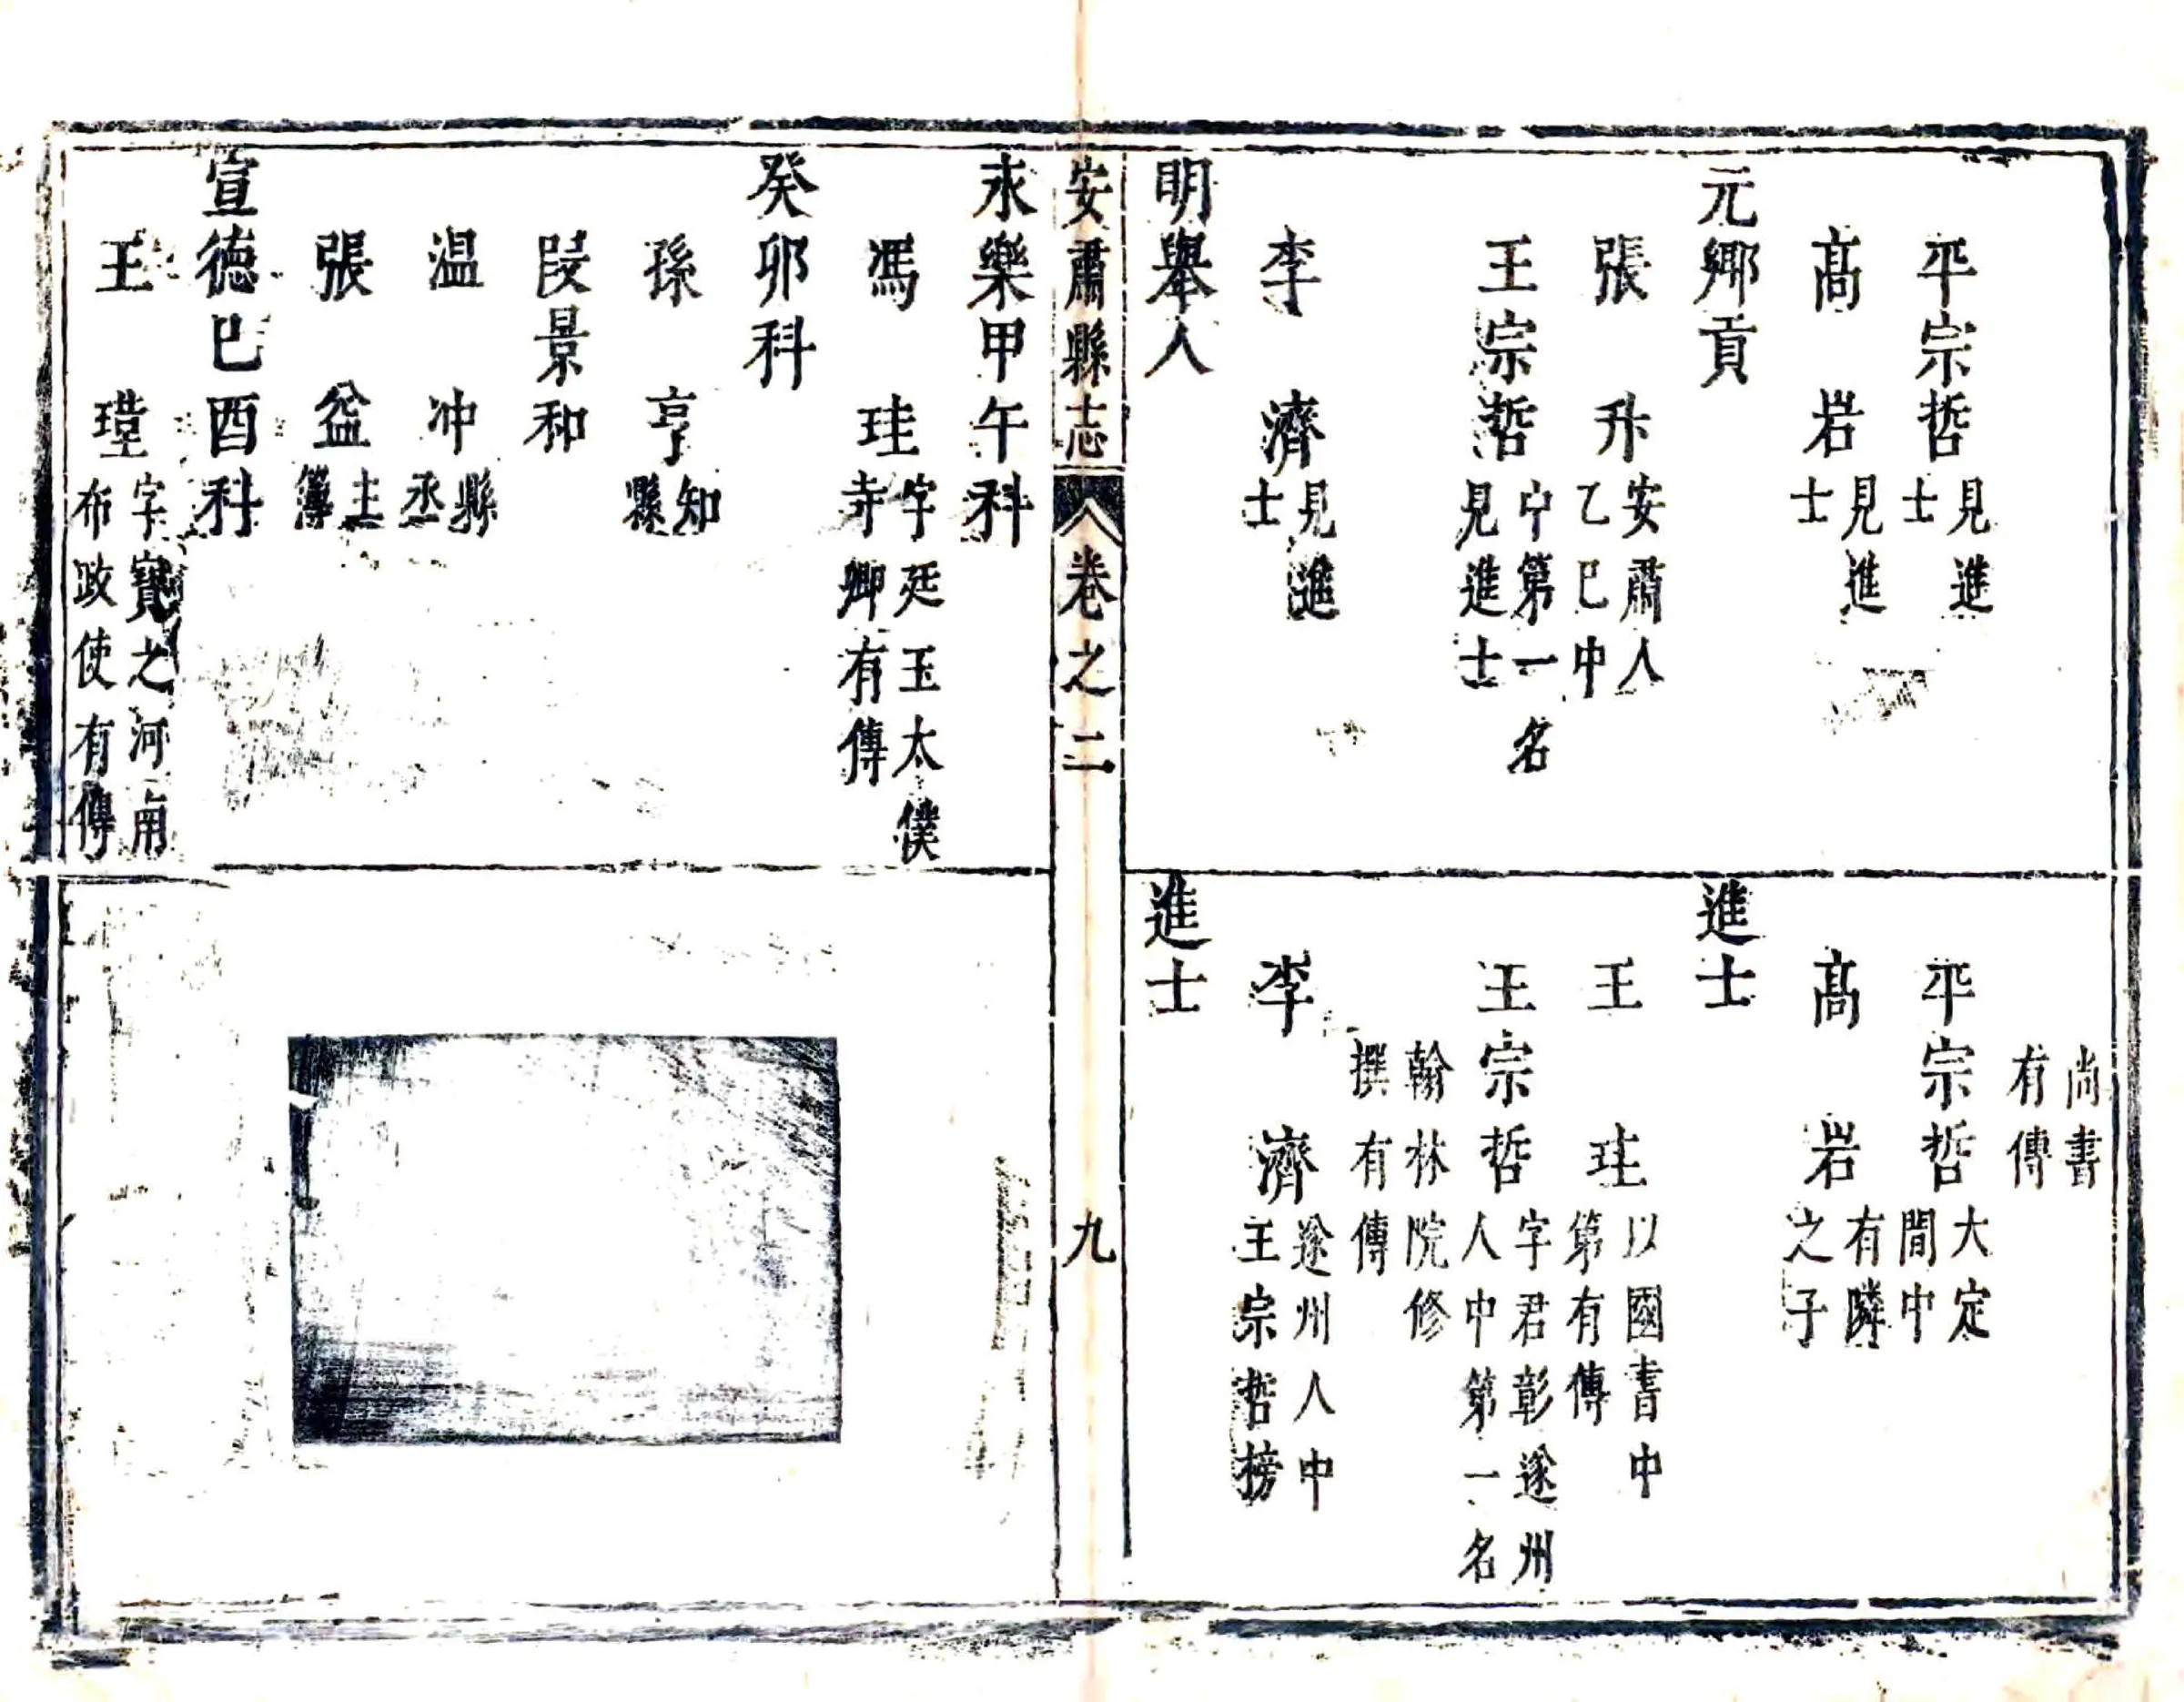 平宗哲見進士
高岩見進士
元鄉貢
張升安肅人乙巳中
王宗哲中第一名見進士
李濟見進士
明舉人
尚書有傳
平宗哲大定間中
高岩有隣之子
進士
王珪以國書中第有傳
王宗哲字君彰遂州人中第一名
翰林院修撰有傳
李濟遂州人中王宗哲榜
進士
安肅縣志 卷之二 九
永樂甲午科
馮珪字廷玉太僕寺卿有傳
癸卯科
孫亨知縣
段景和
温冲縣丞
張益主簿
宣德己酉科
王字寶之河南布政使有傳